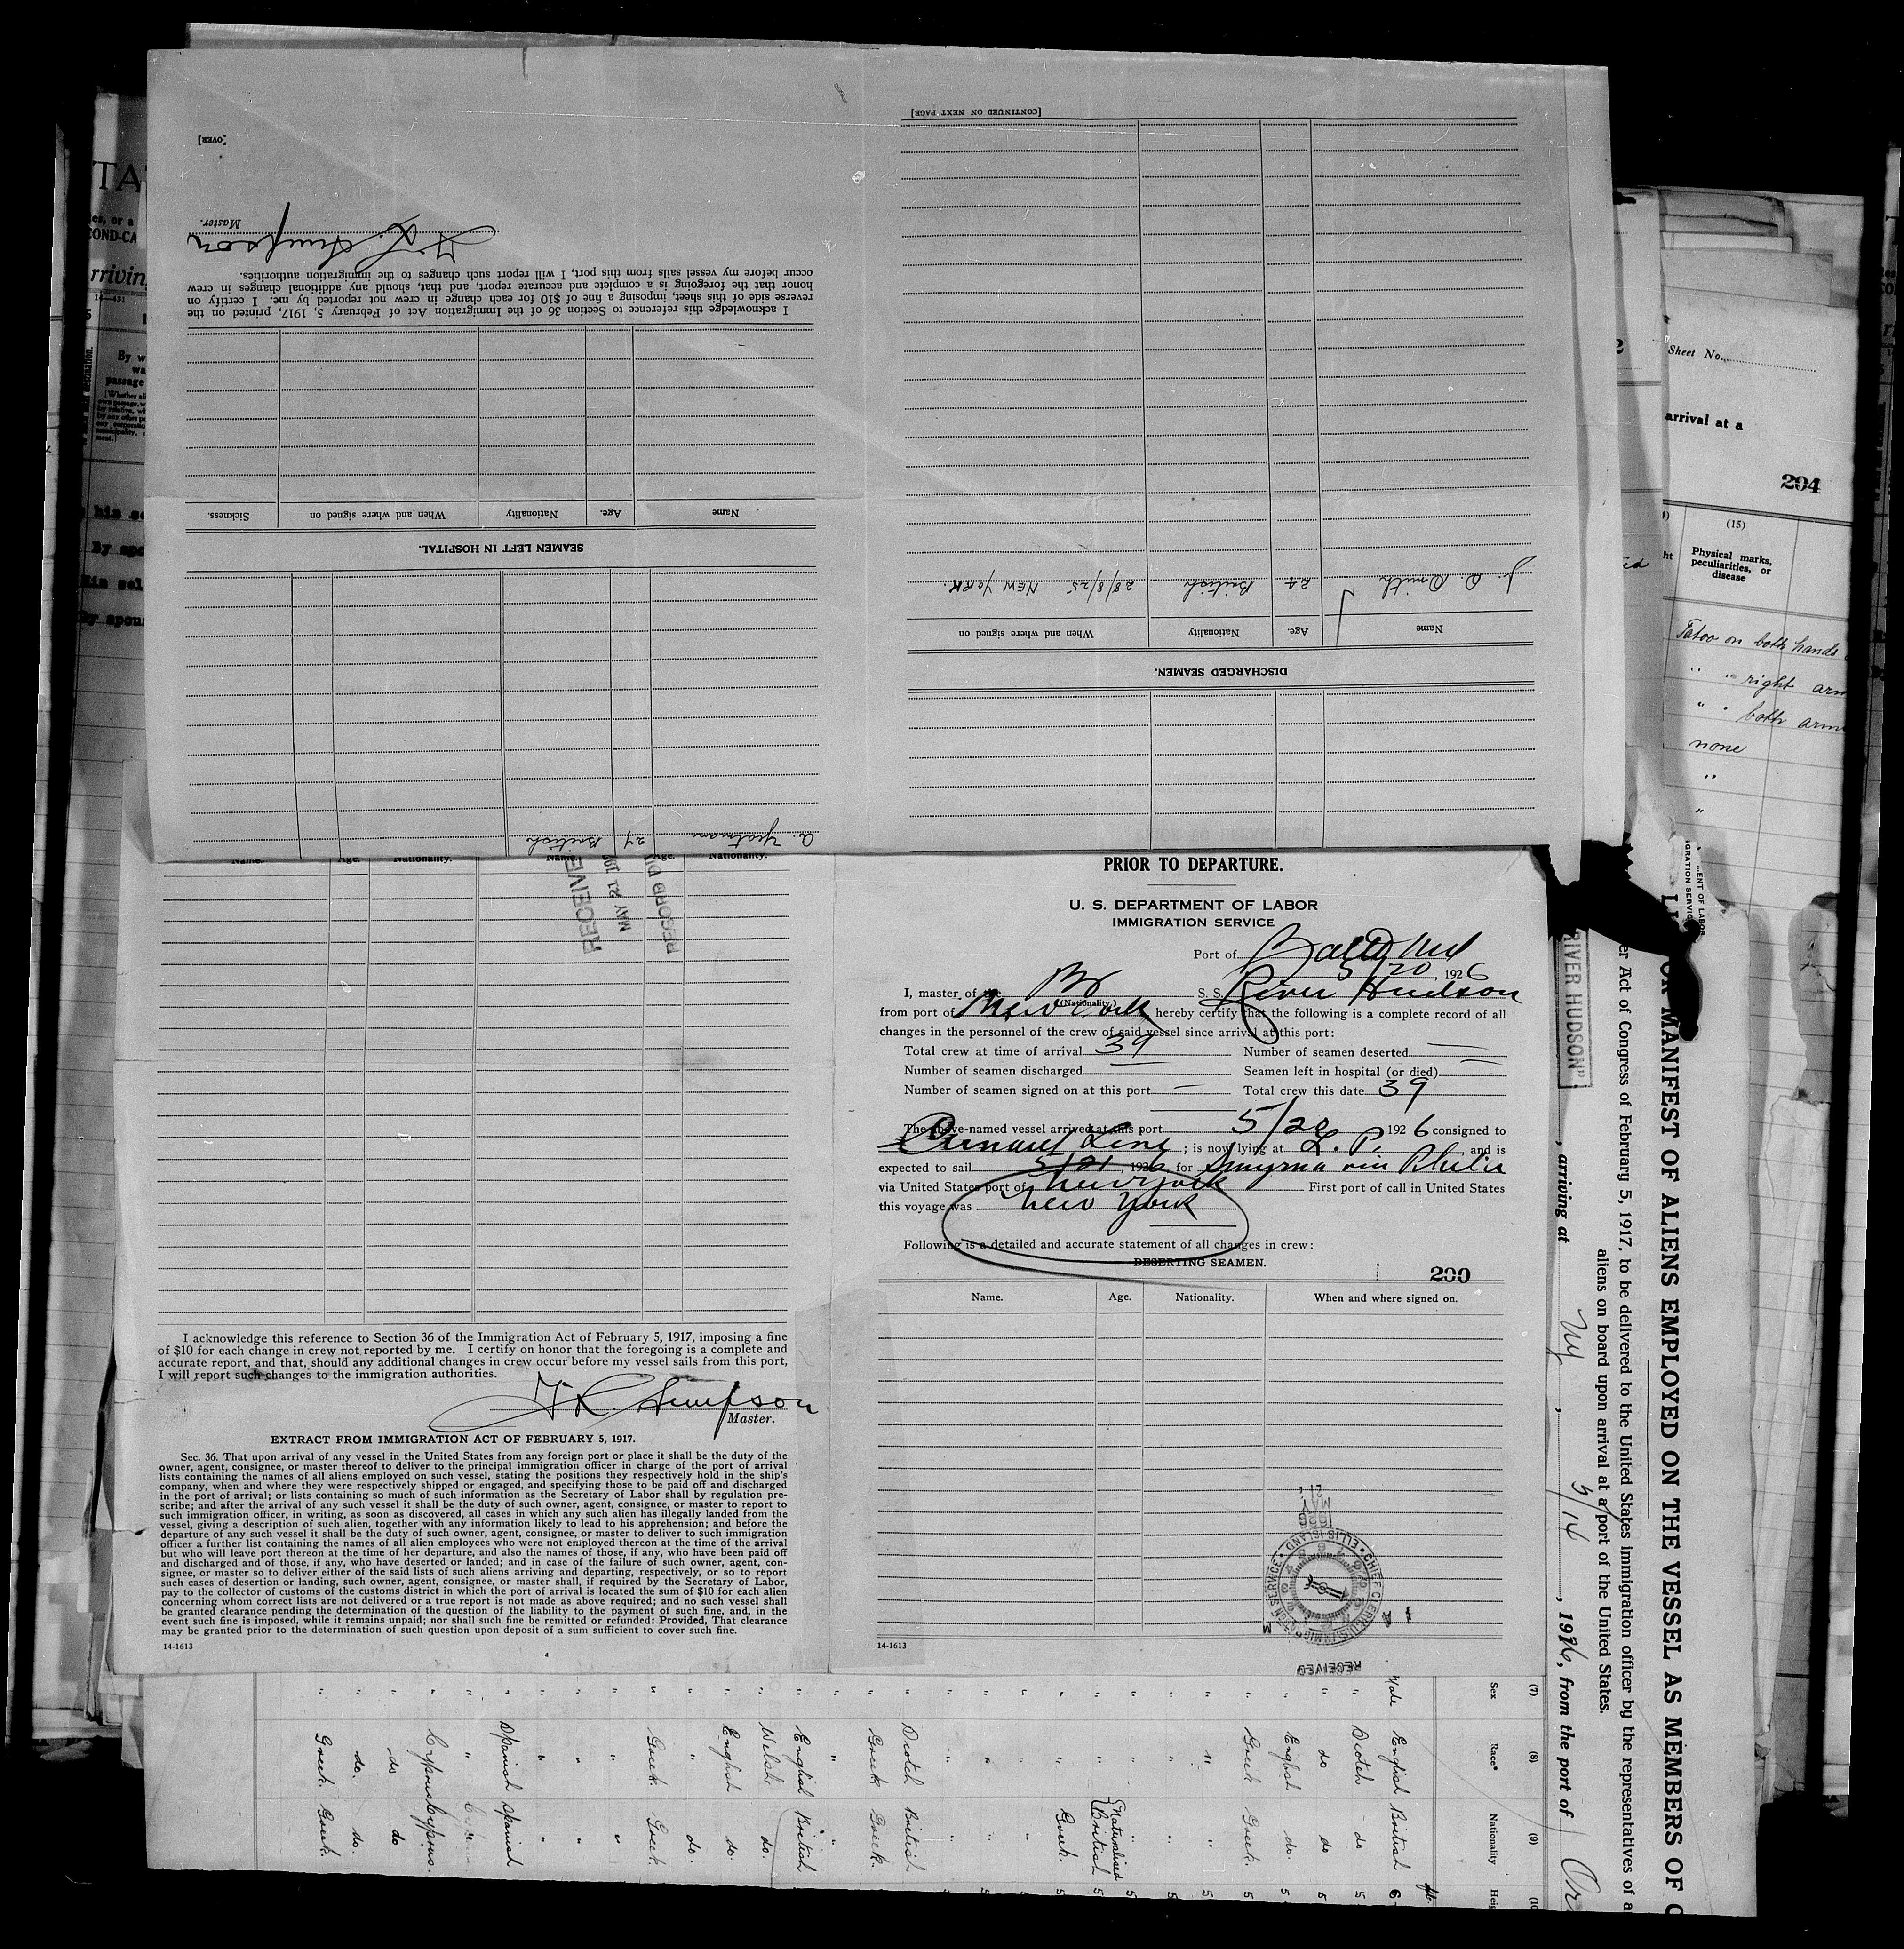 [CONTINUED ON NEXT PAGE]
J. D. Smith 24 British 28/8/25 NEW YORK.
Name Age. Nationality When and where signed on
DISCHARGED SEAMEN.
[OVER]
Master.
I acknowledge this reference to Section 36 of the Immigration Act of February 5, 1917, printed on the
reverse side of this sheet, imposing a fine of $10 for each change in crew not reported by me. I certify on
honor that the foregoing is a complete and accurate report, and that, should any additional changes in crew
occur before my vessel sails from this port, I will report such changes to the immigration authorities.
Simpson
Name Age. Nationality When and where signed on Sickness.
SEAMEN LEFT IN HOSPITAL.
A. Yeatman 24 British
Name. Age. Nationality. Name. Age. Nationality.
RECEIVE
MAY 21
RECORD DI
PRIOR TO DEPARTURE.
U. S. DEPARTMENT OF LABOR
IMMIGRATION SERVICE
Port of Balto Md
5/20, 1926
I, master of the Br S. S. River Hudson
(Nationality.)
from port of New York, hereby certify that the following is a complete record of all
changes in the personnel of the crew of said vessel since arrival at this port:
Total crew at time of arrival 39 Number of seamen deserted —
Number of seamen discharged — Seamen left in hospital (or died) —
Number of seamen signed on at this port — Total crew this date 39
The above-named vessel arrived at this port 5/20 1926 consigned to
Cunard Line; is now lying at L. P. and is
expected to sail 5/21, 1926 for Smyrna via Phila
via United States port of New York First port of call in United States
this voyage was New York
Following is a detailed and accurate statement of all changes in crew:
DESERTING SEAMEN.
200
Name. Age. Nationality. When and where signed on.
I acknowledge this reference to Section 36 of the Immigration Act of February 5, 1917, imposing a fine
of $10 for each change in crew not reported by me. I certify on honor that the foregoing is a complete and
accurate report, and that, should any additional changes in crew occur before my vessel sails from this port,
I will report such changes to the immigration authorities.
Simpson
Master.
EXTRACT FROM IMMIGRATION ACT OF FEBRUARY 5, 1917.
Sec. 36. That upon arrival of any vessel in the United States from any foreign port or place it shall be the duty of the
owner, agent, consignee, or master thereof to deliver to the principal immigration officer in charge of the port of arrival
lists containing the names of all aliens employed on such vessel, stating the positions they respectively hold in the ship's
company, when and where they were respectively shipped or engaged, and specifying those to be paid off and discharged
in the port of arrival; or lists containing so much of such information as the Secretary of Labor shall by regulation pre-
scribe; and after the arrival of any such vessel it shall be the duty of such owner, agent, consignee, or master to report to
such immigration officer, in writing, as soon as discovered, all cases in which any such alien has illegally landed from the
vessel, giving a description of such alien, together with any information likely to lead to his apprehension; and before the
departure of any such vessel it shall be the duty of such owner, agent, consignee, or master to deliver to such immigration
officer a further list containing the names of all alien employees who were not employed thereon at the time of the arrival
but who will leave port thereon at the time of her departure, and also the names of those, if any, who have been paid off
and discharged and of those, if any, who have deserted or landed; and in case of the failure of such owner, agent, con-
signee, or master so to deliver either of the said lists of such aliens arriving and departing, respectively, or so to report
such cases of desertion or landing, such owner, agent, consignee, or master shall, if required by the Secretary of Labor,
pay to the collector of customs of the customs district in which the port of arrival is located the sum of $10 for each alien
concerning whom correct lists are not delivered or a true report is not made as above required; and no such vessel shall
be granted clearance pending the determination of the question of the liability to the payment of such fine, and, in the
event such fine is imposed, while it remains unpaid; nor shall such fine be remitted or refunded: Provided, That clearance
may be granted prior to the determination of such question upon deposit of a sum sufficient to cover such fine.
14-1613
14-1613
RECEIVED
Sheet No.
arrival at a
204
(15)
Physical marks,
peculiarities, or
disease
Tatoo on both hands
" " right arm
" " both arms
none
"
"
MANIFEST OF ALIENS EMPLOYED ON THE VESSEL AS MEMBERS OF
er Act of Congress of February 5, 1917, to be delivered to the United States immigration officer by the representatives of
aliens on board upon arrival at a port of the United States.
RIVER HUDSON"
, arriving at NY, 5/14, 1926, from the port of
(7) (8) (9)
Sex Race* Nationality
Male English British
" Scotch do
" do do
" English do.
" Greek Greek.
Naturalised
British
Greek.
" Scotch British
" Greek. Greek.
" English British
" Welsh do.
" English do.
" " do.
" Greek. Greek
" Spanish Spanish
" Cyprus Cyprus.
" do do
" do. do.
" Greek. Greek.